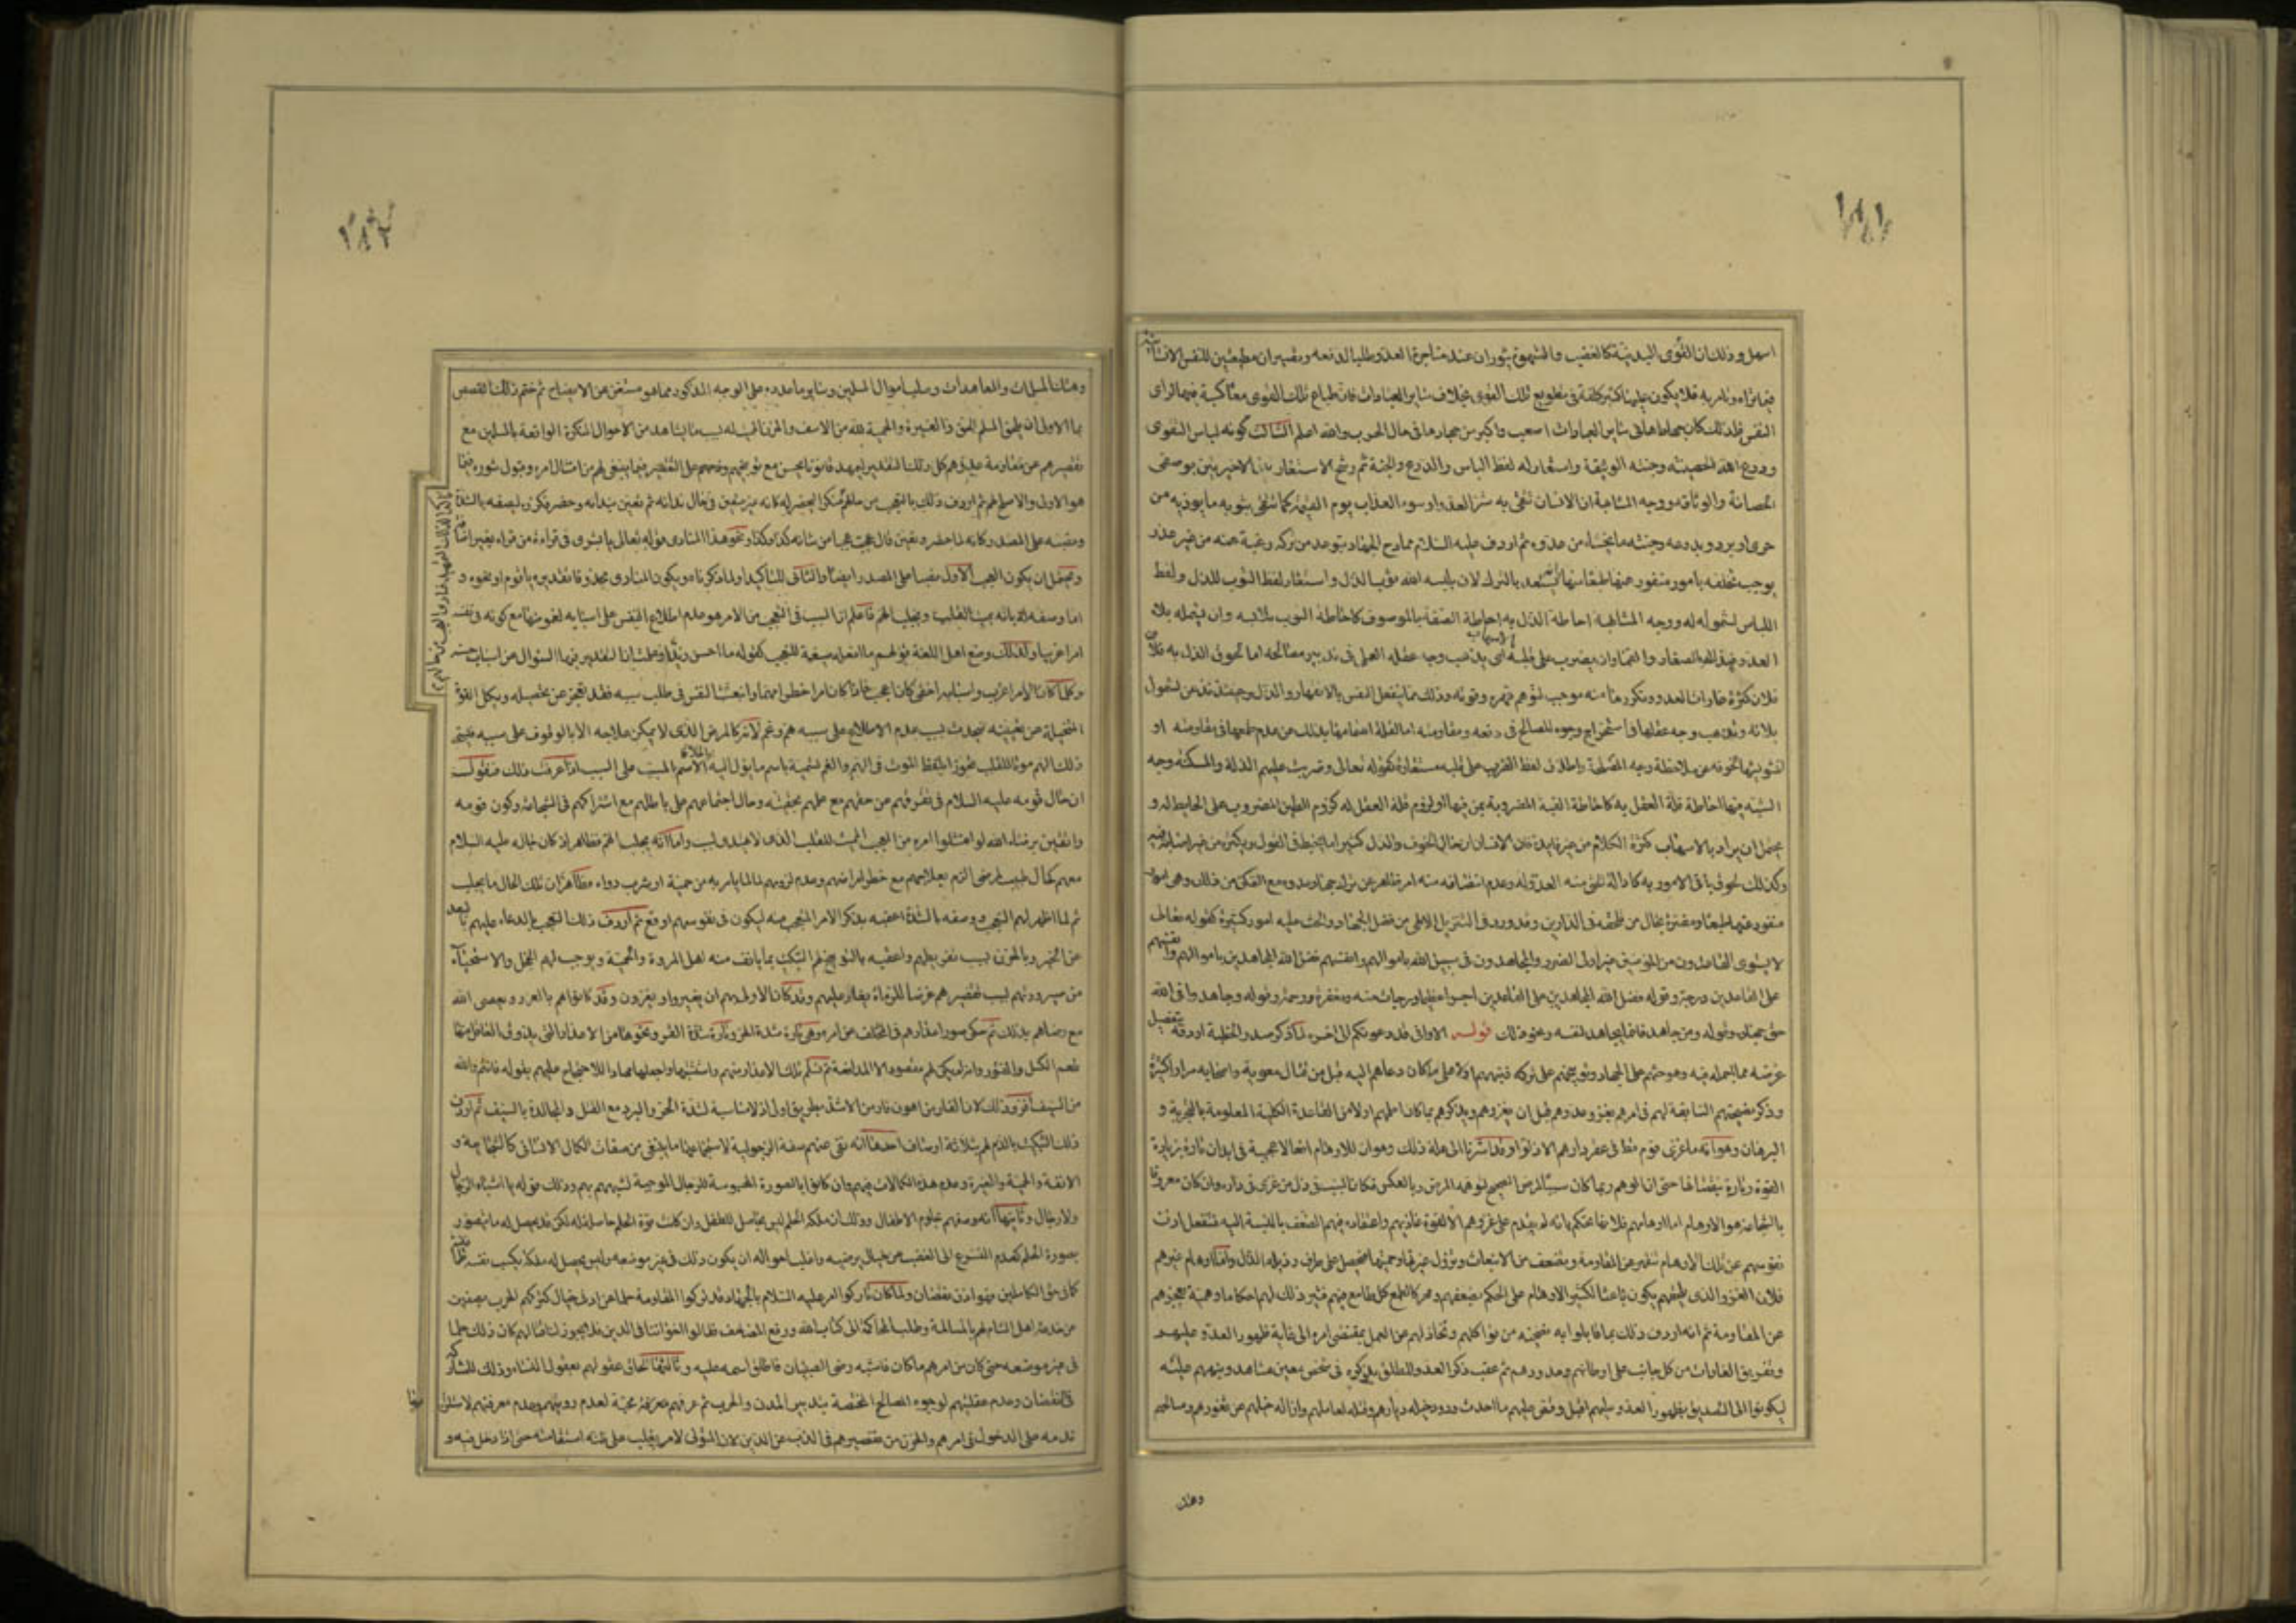 ١٨١
اسهل وذلك ان القوى البدنية كالغضب والشهوة يثوران عند مناجزة العدو طلبا لدفعه ويصيران مطيعتين للنفس الانسانية
فيما تراه وتامر به فلا يكون عليها كثير كلفة فى تطويع تلك القوى بخلاف ساير العبادات فان طباع تلك القوى معاكسة فيها لراى
النفس فلذلك كان جهادها فى ساير العبادات اصعب واكبر من جهادها فى حال الحرب والله اعلم الثالث كونه لباس التقوى
ودرع الله الحصينة وجنته الوثيقة واستعار له لفظ اللباس والدرع والجنة ثم رشح الاستعارتين الاخيرتين بوصفى
الحصانة والوثاقة ووجه المشابهة ان الانسان يتقى به شر العدو او سوء العذاب يوم القيمة كما يتقى بثوبه ما يوذيه من
حر او برد وبدرعه وجنته ما يخشاه من عدوه ثم اردف عليه السلام ممادح الجهاد بتوعد من تركه رغبة عنه من غير عذر
يوجب تخلفه بامور منفور عنها طبعا منها انه يستعد بالترك لان يلبسه الله ثوب الذل واستعار لفظ الثوب للذل ولفظ
اللباس لشموله له ووجه المشابهة احاطة الذل به احاطة الصفة بالموصوف كاحاطة الثوب بلابسه وان يشمله بلاء
العدو فيذله بالصغار والقماء وان يضرب على قلبه بالاسهاب اى يذهب وجه عقله العملى فى تدبير مصالحه اما لحوق الذل به فلا
فلان كثرة غارات العدو وتكررها منه موجب لتوهم قهره وقوته وذلك مما ينفعل النفس بالانقهار والذل وحينئذ تذعن لشمول
بلائه وتذهب وجه عقلها فى استخراج وجوه المصالح فى دفعه ومقاومته اما لقلة اهتمامها بذلك عن عدم طمعها فى مقاومته او
لتشويشها بخوفه عن ملاحظة وجه المصلحة واطلاق لفظ الضرب على قلبه مستعارة كقوله تعالى وضربت عليهم الذلة والمسكنة وجه
الشبه فيها احاطة قلة العقل به كاحاطة القبة المضروبة بمن فيها او لزوم قلة العقل له كلزوم الطين المضروب على الحايط له و
يحتمل ان يراد بالاسهاب كثرة الكلام من غير فايدة فان الانسان حال الخوف والذل كثيرا ما يخبط فى القول ويكثر من غير اصابة فيه
وكذلك لحوق باقى الامور به كادالة الحق منه العدو له وعدم انتصافه منه امر ظاهر عن ترك جهاد عدوه مع التمكن من ذلك وهى امور
منفور عنها طبعا ومضرة بحال من تحقت فى الدارين وقد ورد فى التنزيل الالهى من فضل الجهاد والحث عليه امور كثيرة كقوله تعالى
لا يستوى القاعدون من المؤمنين غير اولى الضرر والمجاهدون فى سبيل الله باموالهم وانفسهم فضل الله المجاهدين باموالهم وانفسهم
على القاعدين درجة وقوله فضل الله المجاهدين على القاعدين اجرا عظيما درجات منه ومغفرة ورحمة وقوله وجاهدوا فى الله
حق جهاده وقوله ومن جاهد فانما يجاهد لنفسه ونحو ذلك قوله الا وانى قد دعوتكم الى اخره لما ذكر صدر الخطبة اردفه بتفصيل
غرضه مما اجمله فيه وهو حثهم على الجهاد وتوبيخهم على تركه فنبههم اولا على ما كان دعاهم اليه قبل من قتال معوية واصحابه مرارا كثيرة
وذكر نصيحته السابقة لهم فى امرهم بغزو عدوهم قبل ان يغزوهم ويذكرهم بما كان اعلمهم اولا من القاعدة الكلية المعلومة بالتجربة و
البرهان وهو انه ما غزى قوم قط فى عقر دارهم الا ذلوا وقد اشرنا الى علة ذلك وهو ان للاوهام افعالا عجيبة فى ابدان تارة بزيادة
القوة وتارة بنقصانها حتى ان الوهم ربما كان سببا لمرض الصحيح لتوهمه المرض وبالعكس فكان السبب فى ذل من غزى فى داره وان كان معروفا
بالشجاعة هو الاوهام اما اوهامهم فلانها تحكم بانه لم يقدم على غزوهم الا لقوة غازيهم واعتقاده فيهم الضعف بالنسبة اليه فتنفعل اذن
نفوسهم عن تلك الاوهام فتقهر عن المقاومة وتضعف عن الانبعاث وتزول غيرتها وحميتها فتحصل على طرف رذيلة الذل واما اوهام غيرهم
فلان الغزو الذى يلحقهم يكون باعثا لكثير الاوهام على الحكم بضعفهم ومحركا لطمع كل طامع فيهم فتثير ذلك لهم احكاما وهمية بعجزهم
عن المقاومة ثم انه اردف ذلك بما قابلوا به نصيحته من تواكلهم وتخاذلهم عن العمل بمقتضى امره الى غاية ظهور العدو عليهم
وتفريق الغارات من كل جانب على اوطانهم وحدودهم ثم عقب ذكر العدو المطلق بذكره فى شخص معين مشاهد وينهم عليه
ليكونوا الى التصديق بظهور العدو عليهم اقبل وقص عليهم ما احدث ورود خيله ديارهم وقتله لعاملهم وازالة خيلهم عن ثغورهم ومسالحهم
وهتك
١٨٢
وهتك المسلمات والمعاهدات وسلب اموال المسلمين وساير ما عدده على الوجه المذكور مما هو مستغن عن الايضاح ثم ختم ذلك القصص
بما الاولى ان يلحق المسلم الحق ذا الغيرة والحمية لله من الاسف والحزن المميت له بسبب ما يشاهده من الاحوال المنكرة الواقعة بالمسلمين مع
تقصيرهم عن مقاومة عدوهم كل ذلك التقدير ليمهد قانونا يحسن معه توبيخهم وذمهم على التقصير فيما ينبغى لهم من امتثال امره وقبول شوره فيما
هو الاولى والاصلح لهم ثم اردف ذلك بالتعجب من حالهم منكرا ليحضر له كانه غير متعين فى حال ندائه ثم تعين بندائه وحضر فكرره ليصفه بالشدة
ونصبه على المصدر كانه لما حضر وتعين قال عجبت عجبا من شانه كذا وكذا ونحو هذا المنادى قوله تعالى يا بشرى فى قراءة من قراه بغير اضافة
ويحتمل ان يكون العجب الاول نصبا على المصدر ايضا والثانى للتاكيد او لما ذكرناه ويكون المنادى محذوفا تقديره يا قوم او نحوه و
اما وصفه له بانه يميت القلب ويجلب الهم فاعلم ان السبب فى التعجب من الامر هو عدم اطلاع النفس على اسبابه لغموضها مع كونه فى نفسه
امرا غريبا ولذلك وضع اهل اللغة قولهم ما افعله صيغة للتعجب كقوله ما احسن زيدا وعلتها ان التقدير فيها السؤال عن اسباب حسنه
وكلما كان الامر اغرب واسبابه اخفى كان اعجب فاذا كان امرا خطرا مهما وانبعثت النفس فى طلب سببه فقد تعجز عن تحصيله ويكل القوة
المتخيلة عن تعيينه فيحدث بسبب عدم الاطلاع على سببه هم وغم لانه كالمرض الذى لا يمكن علاجه الا بالوقوف على سببه فيسمى
ذلك الهم موتا للقلب تجوزا بلفظ الموت فى الهم والغم تسمية باسم ما يؤل اليه باطلاق الاسم المسبب على السبب اذا عرفت ذلك فنقول
ان حال قومه عليه السلام فى تفرقهم عن حقهم مع علمهم بحقيته وحال اجتماعهم على باطلهم مع اشتراكهم فى الشجاعة وكون قومه
واثقين برضاء الله لو امتثلوا امره من العجب المميت للقلب الذى لا يهتدى لسببه واما انه يجلب الهم فظاهر اذ كان حاله عليه السلام
معهم كحال طبيب لمرضى الزم بعلاجهم مع خطر امراضهم وعدم لزومهم لما يامرهم به من حمية او شرب دواء وظاهر ان تلك الحال ما يجلب
ثم لما اظهر لهم التعجب ووصفه بالشدة اعقبه بذكر الامر المتعجب منه ليكون فى نفوسهم اوقع ثم اردف ذلك التعجب بالدعاء عليهم بالبعد
عن الخير وبالحزن بسبب تفريطهم واعقبه بالتوبيخ لهم والتبكيت بما يانف منه اهل المروة والحمية ويوجب لهم الخجل والاستحياء
من صيرورتهم بسبب تقصيرهم غرضا للرماة يغار عليهم وقد كان الاولى بهم ان يغيروا ويغزون وقد كانوا هم بالغزو ويعصى الله
مع رضاهم بذلك ثم حكى صور اعذارهم فى التخلف عن امره وهى تارة شدة الحر وتارة شدة القر ونحوها من الاعذار التى يذوق العاقل منها
طعم الكسل والفتور وانه لم يكن لهم مقصود الا المدافعة ثم تسلم تلك الاعذار منهم واستثبتها واجعلها مهادا للاحتجاج عليهم بقوله فانتم والله
من السيف افر وذلك لان الفار من الاهون فار من الاشد بطريق اولى اذ لا مناسبة لشدة الحر والبرد مع القتل والمجالدة بالسيف ثم اردف
ذلك التبكيت بالذم لهم بثلاثة اوصاف احدها انه نفى عنهم صفة الرجولية لاستجماعها ما ينبغى من صفات الكمال الانسانى كالشجاعة و
الانفة والحمية والغيرة وعدم هذه الكمالات فيهم وان كانوا بالصورة المحسوسة للرجال الموجبة لشبههم بهم وذلك قوله يا اشباه الرجال
ولا رجال وثانيها انه وصفهم بحلوم الاطفال وذلك ان ملكة الحلم ليس بحاصل للطفل وان كانت قوة الحلم حاصلة له لكن قد يحصل له ما يتصور
بصورة الحلم كعدم التسرع الى الغضب عن خيال يرضيه واغلب احواله ان يكون ذلك فى غير موضعه وليس يحصل له ملكة يكسب نفسه طمانينة
كما فى حق الكاملين فهو اذن نقصان ولما كان تاركوا امره عليه السلام بالجهاد قد تركوا المقاومة حلما عن ادنى خيال كتركهم الحرب بصفين
من خدعة اهل الشام لهم بالمسالمة وطلب المحاكمة الى كتاب الله ورفع المصاحف فقالوا اخواننا فى الدين فلا يجوز لنا قتالهم كان ذلك حلما
فى غير موضعه حتى كان من امرهم ما كان فاشبه رضى الصبيان فاطلق اسمه عليه وثالثها الحاق عقولهم بعقول النساء وذلك للمشاركة
فى النقصان وعدم عقليتهم لوجوه المصالح المختصة بتدبير المدن والحرب ثم عرفهم بمحبته لعدم رؤيتهم وعدم معرفتهم لاستلزامها
ندمه على الدخول فى امرهم والحزن من تقصيرهم فى الذب عن الدين لان المتولى لامر يغلب على ظنه استقامته حتى اذا دخل فيه و